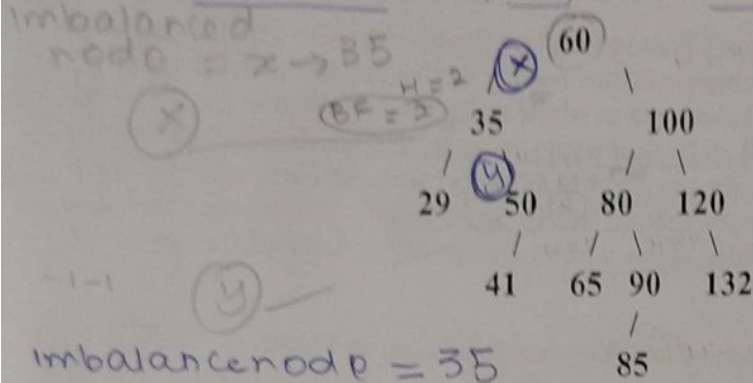 imbalanced
node = x → 35
x
60
x
H = 2
BF =
35 100
/ \ / \
y
29 50 80 120
/ / \ \
41 65 90 132
-1-1
y
/
imbalancenode = 35
85